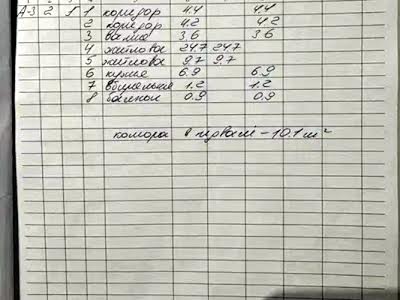 А-3 2 5 1 коридор 4.4 4.4
2 коридор 4.2 4.2
3 ванна 3.6 3.6
4 житлова 24.7 24.7
5 житлова 9.7 9.7
6 кухня 6.9 6.9
7 вбиральня 1.2 1.2
8 балкон 0.9 0.9
комора в підвалі - 10.1 м²